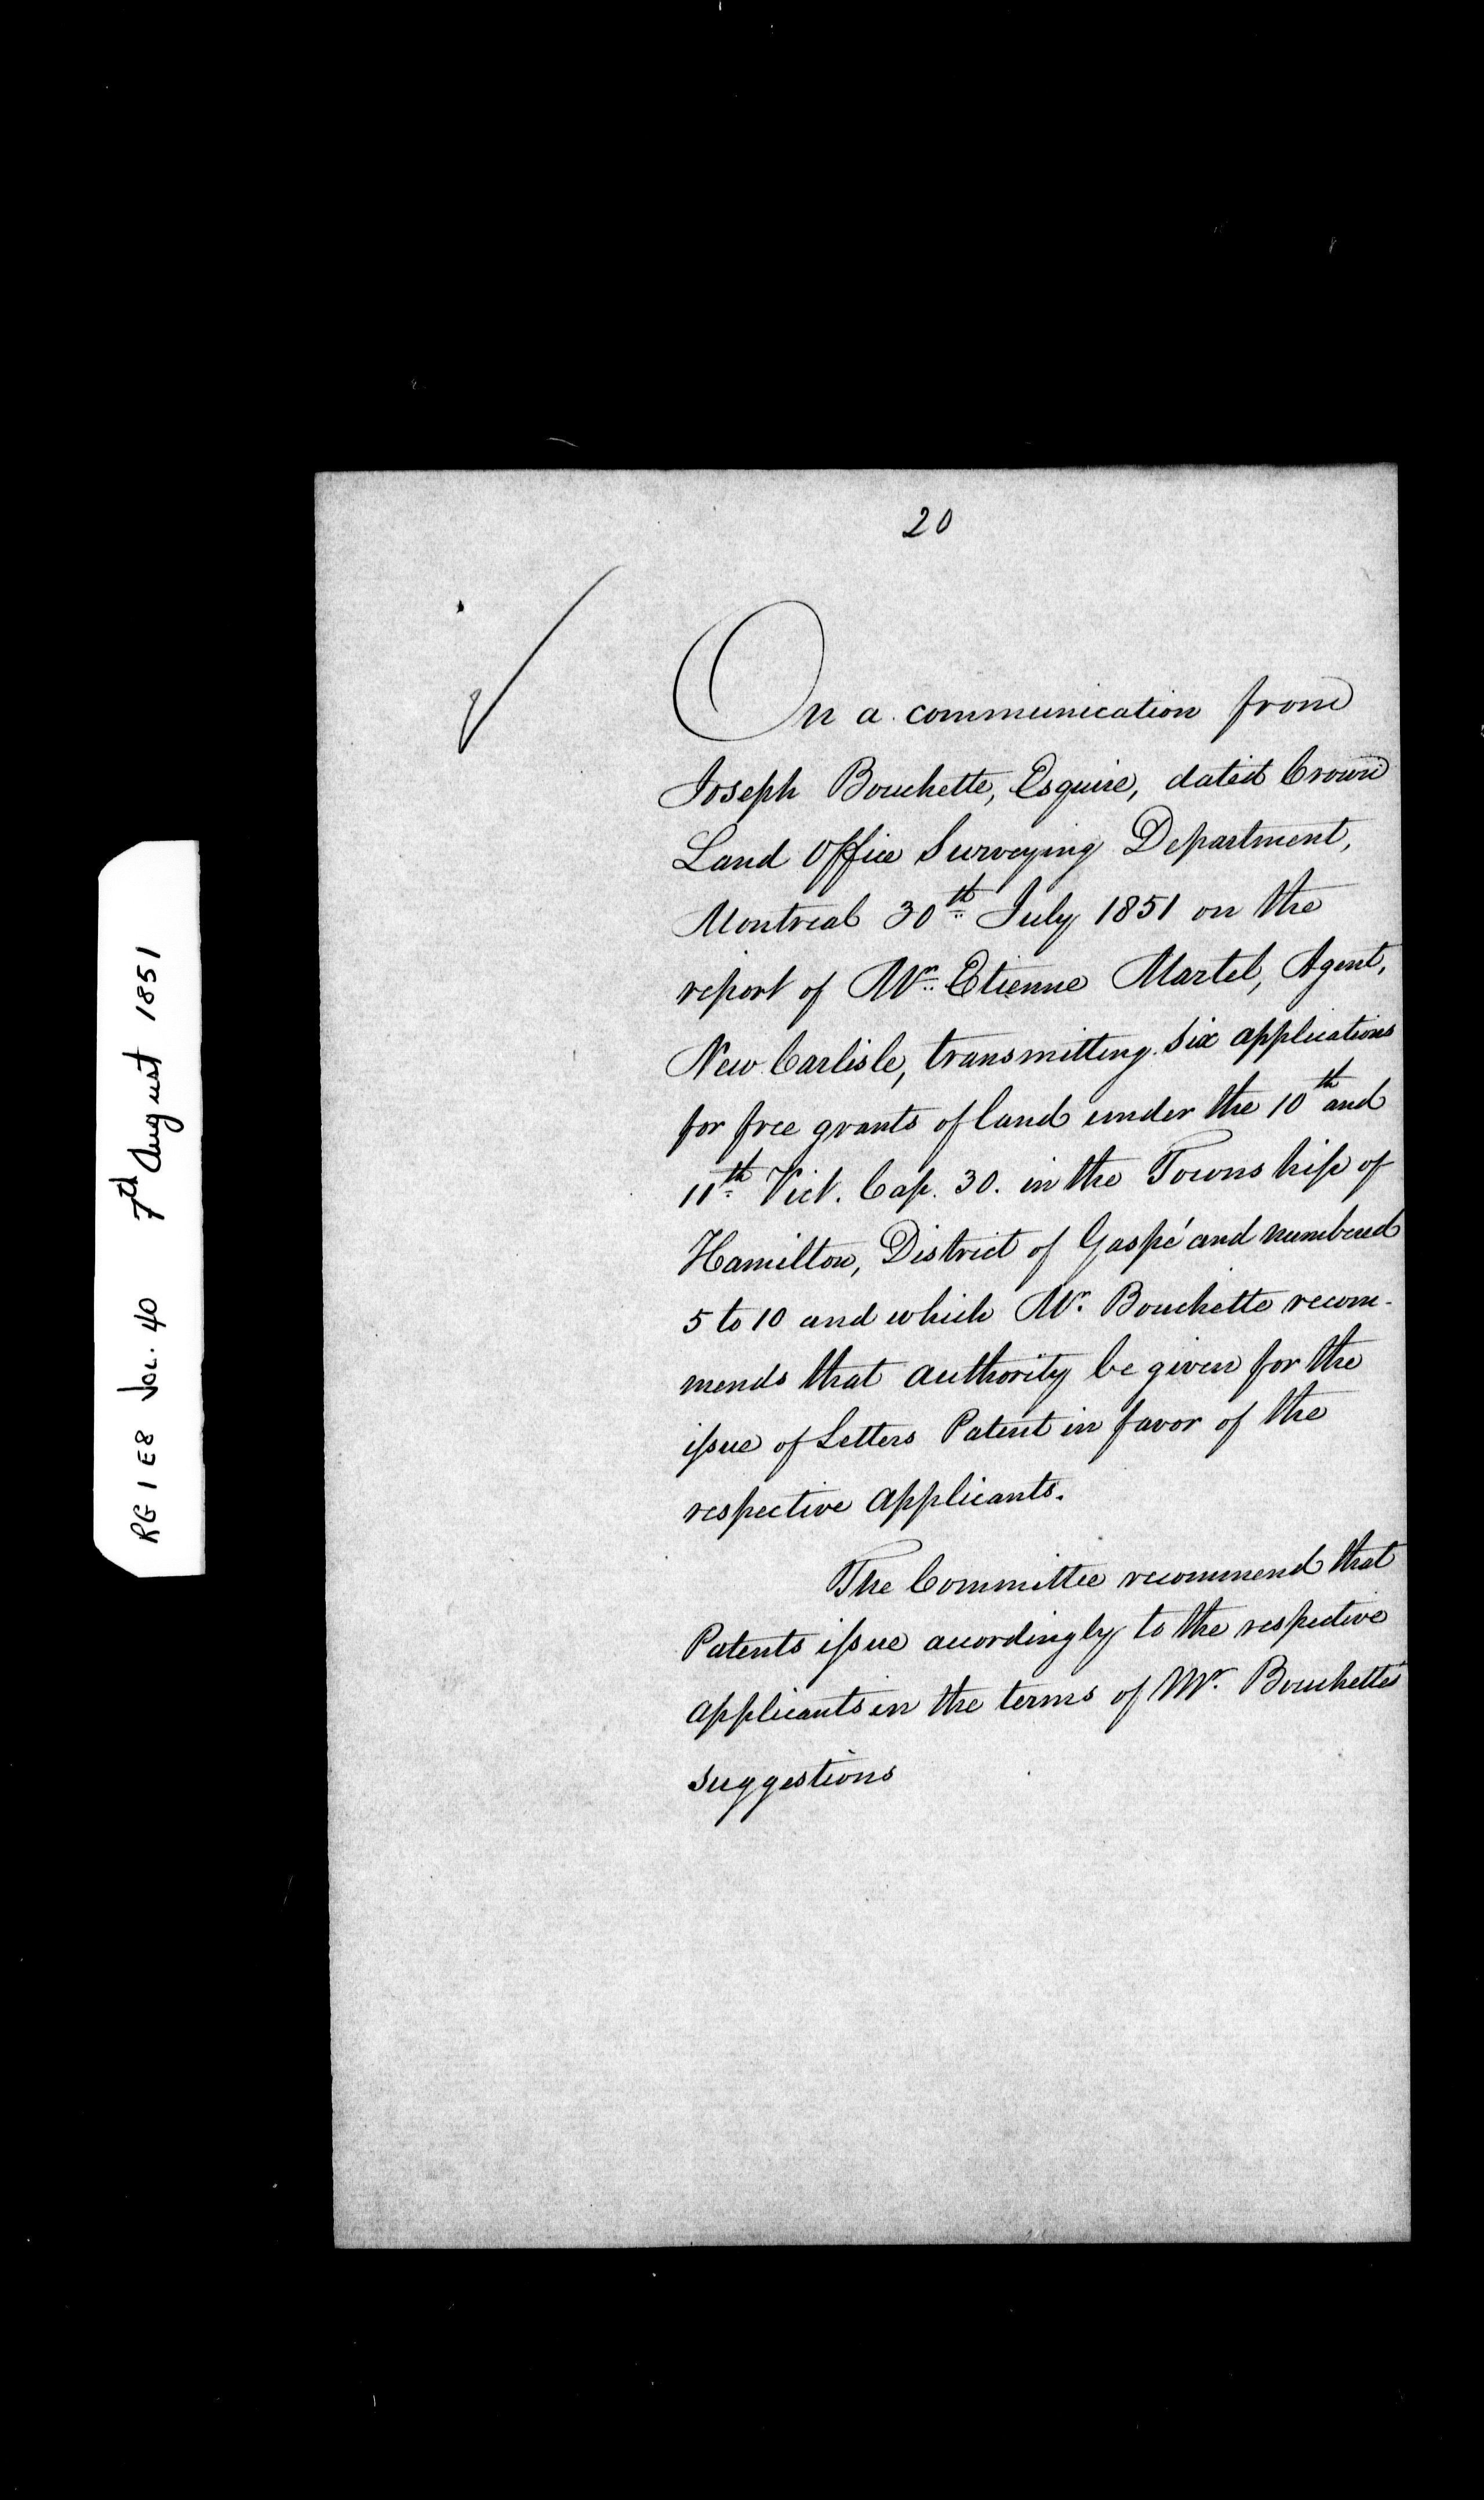 RG 1 E8 VOL. 40 7th August 1851
20
On a communication from
Joseph Bouchette, Esquire, dated Crown
Land Office Surveying Department,
Montreal 30th July 1851 on the
report of Mr. Etienne Martel, Agent,
New Carlisle, transmitting six applications
for free grants of land under the 10th and
11th Vict. Cap. 30. in the Township of
Hamilton, District of Gaspé and numbered
5 to 10 and which Mr. Bouchette recom-
mends that authority be given for the
issue of Letters Patent in favor of the
respective applicants.
The Committee recommend that
Patents issue accordingly to the respective
applicants in the terms of Mr. Bouchette's
suggestions